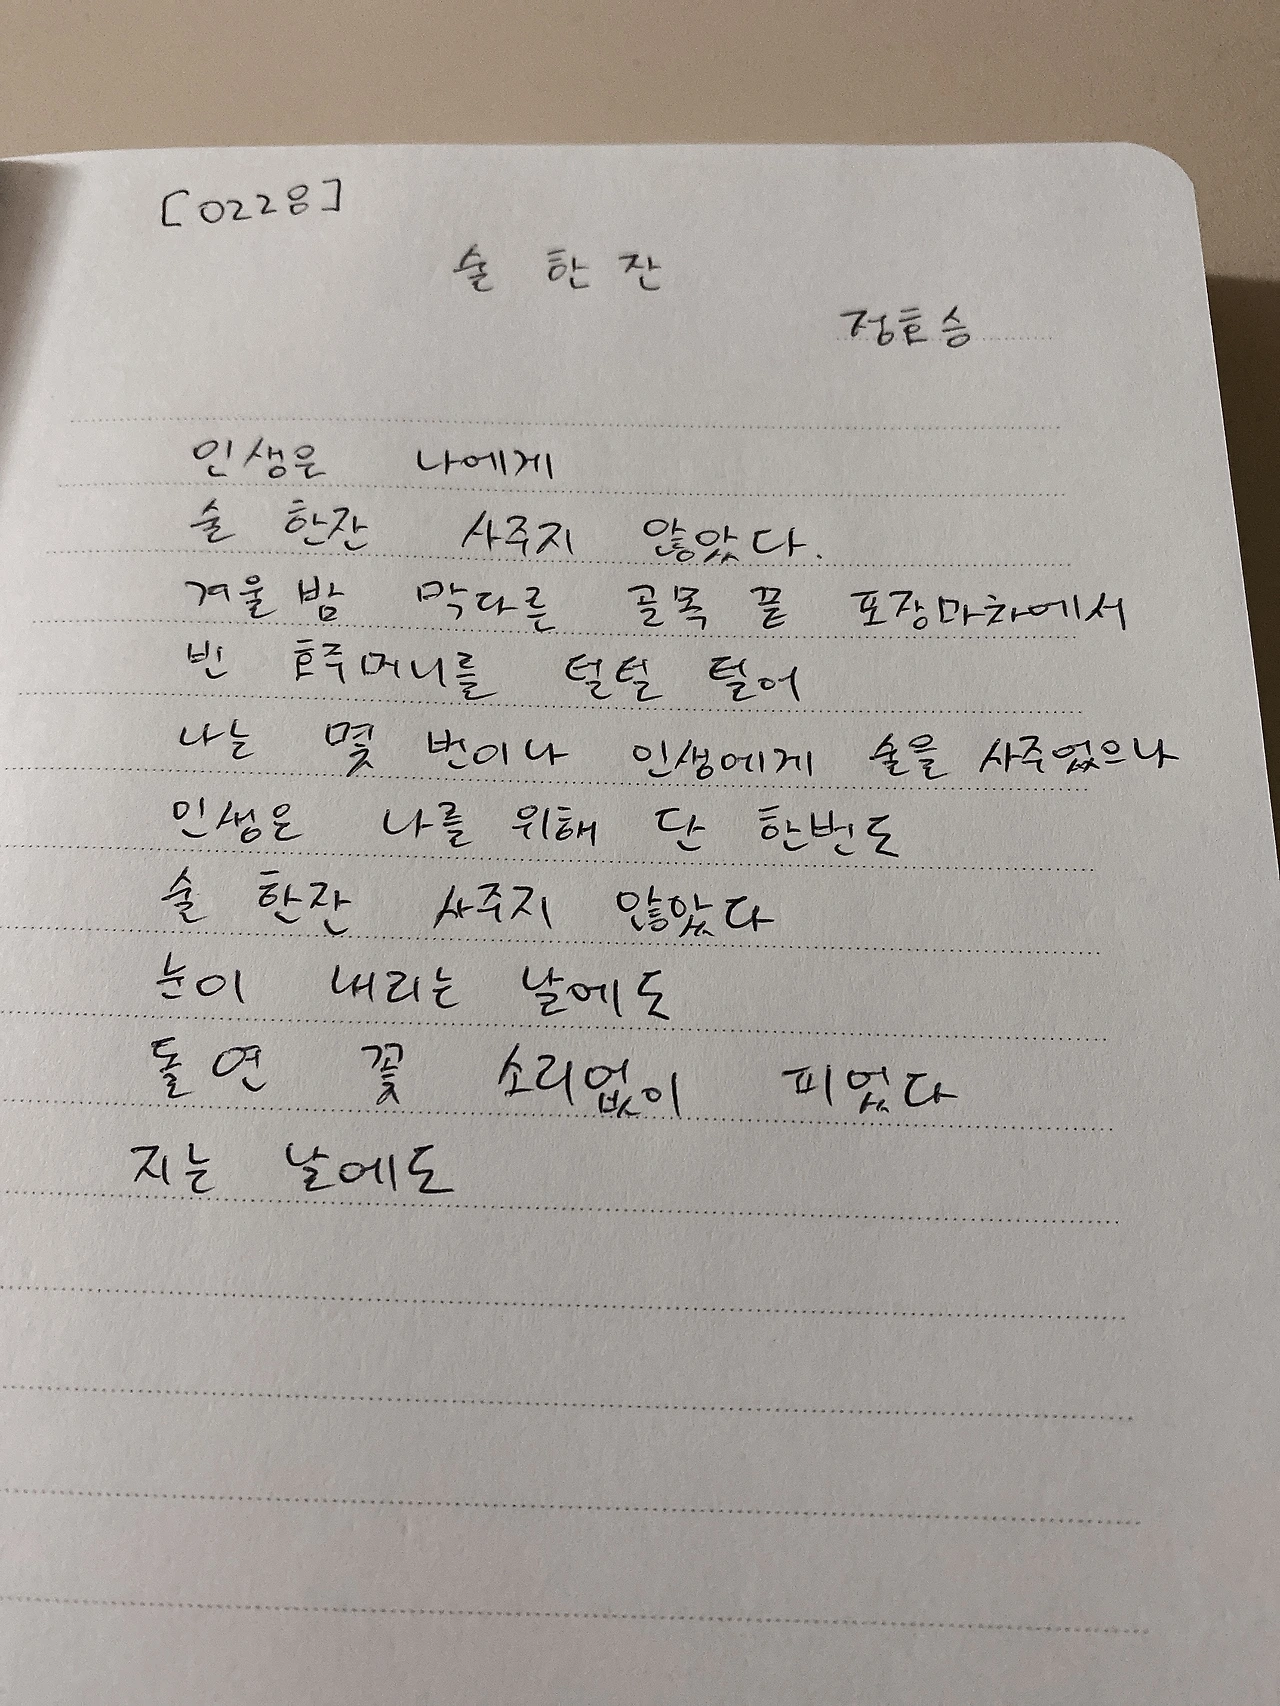 [0228]
술 한 잔
정호승
인생은 나에게
술 한잔 사주지 않았다.
겨울밤 막다른 골목 끝 포장마차에서
빈 호주머니를 털털 털어
나는 몇 번이나 인생에게 술을 사주었으나
인생은 나를 위해 단 한번도
술 한잔 사주지 않았다
눈이 내리는 날에도
돌연 꽃 소리없이 피었다
지는 날에도